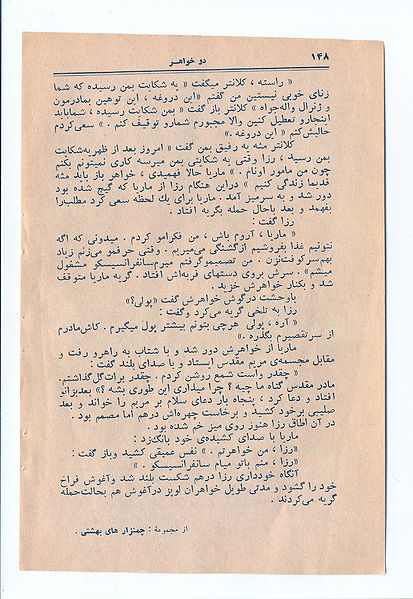 ۱۴۸
دو خواهر
« راسته ، کلانتر میگفت « یه شکایت بمن رسیده که شما
زنای خوبی نیستین من گفتم «این دروغه ، این توهین بمادرمون
و ژنرال واله‌جواه » کلانتر باز گفت « بمن شکایت رسیده ، شمابایاد
اینجارو تعطیل کنین والا مجبورم شمارو توقیف کنم . » سعی‌کردم
حالیش‌کنم « این دروغه .»
کلانتر مثه یه رفیق بمن گفت « امروز بعد از ظهریه‌شکایت
بمن رسید ، رزا وقتی یه شکایتی بمن میرسه کاری نمیتونم بکنم
چون من مامور اونام . » ماریا حالا فهمیدی ، خواهر باز باید مثه
قدیما زندگی کنیم » دراین هنگام رزا از ماریا که گیج شده بود
دور شد و به سرمیز آمد . ماریا برای یك لحظه سعی کرد مطلب‌را
بفهمد و بعد باحال حمله بگریه افتاد .
رزا گفت :
« ماریا ، آروم باش ، من فکرامو کردم . میدونی که اگه
نتونیم غذا بفروشیم ازگشنگی می‌میریم . وقتی حرفمو میزنم زیاد
بهم‌سرکوفت‌نزن . من تصمیموگرفتم میرم‌سانفرانسیسکو مشغول
میشم» . سرش بروی دستهای فربه‌اش افتاد . گریه ماریا متوقف
شد و بکنار خواهرش خزید .
باوحشت درگوش خواهرش گفت «پولی؟»
رزا به تلخی گریه می‌کرد وگفت :
« آره ، پولی هرچی بتونم بیشتر پول میگیرم . کاش‌مادرم
از سرتقصیرم بگذره .»
ماریا از خواهرش دور شد و با شتاب به راهرو رفت و
مقابل مجسمه‌ی مریم مقدس ایستاد و با صدای بلند گفت :
« چقدر واست شمع روشن کردم . چقدر برات‌گل‌گذاشتم.
مادر مقدس گناه ما چیه ؟ چرا میذاری این طوری بشه ؟» بعدبزانو
افتاد و دعا کرد ، پنجاه بار دعای سلام بر مریم را خواند و بعد
صلیبی برخود کشید و برخاست چهره‌اش درهم اما مصمم بود .
در آن اطاق رزا هنوز روی میز خم شده بود .
ماریا با صدای کشیده‌ی خود بانگ‌زد :
«رزا ، من خواهرتم . » نفس عمیقی کشید وباز گفت :
«رزا ، منم باتو میام سانفرانسیسکو . »
آنگاه خودداری رزا درهم شکست بلند شد وآغوش فراخ
خود را گشود و مدتی طویل خواهران لوپز درآغوش هم بحالت‌حمله
گریه می‌کردند .
از مجموعهٔ : چمنزار های بهشتی .